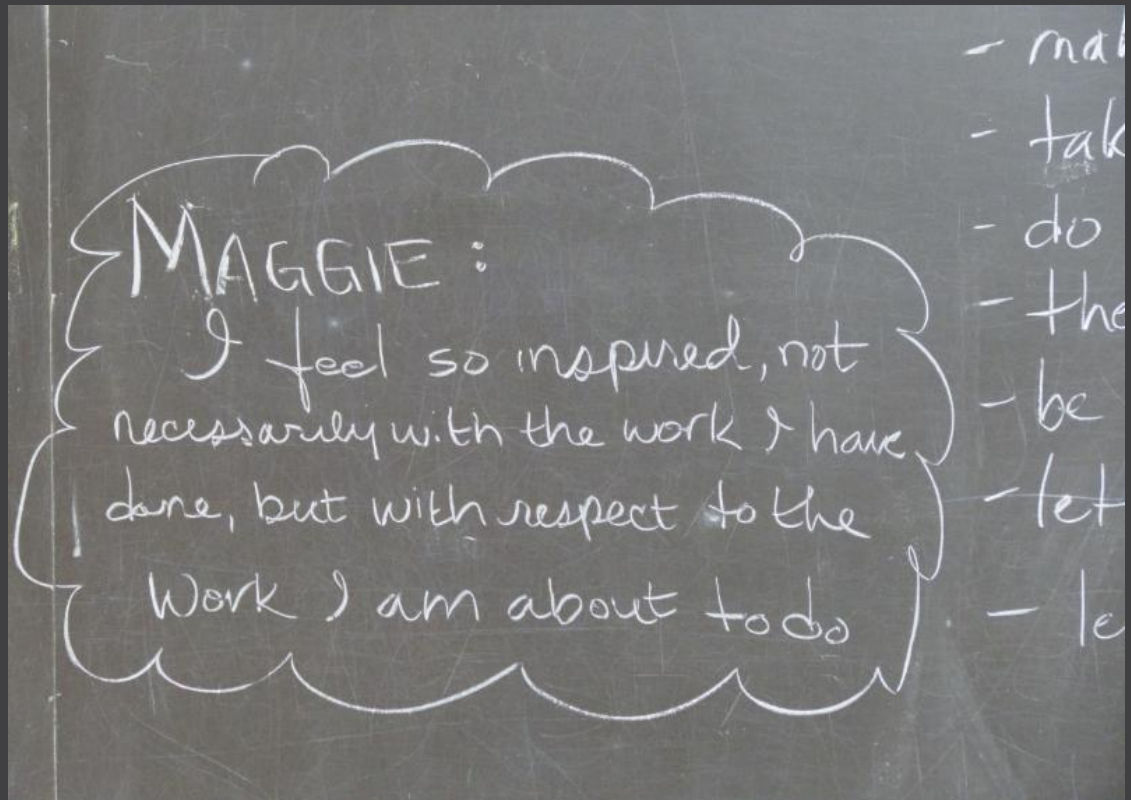 MAGGIE:
I feel so inspired, not
necessarily with the work I have
done, but with respect to the
Work I am about to do
- 
- 
- do
- the
- be
- let
-